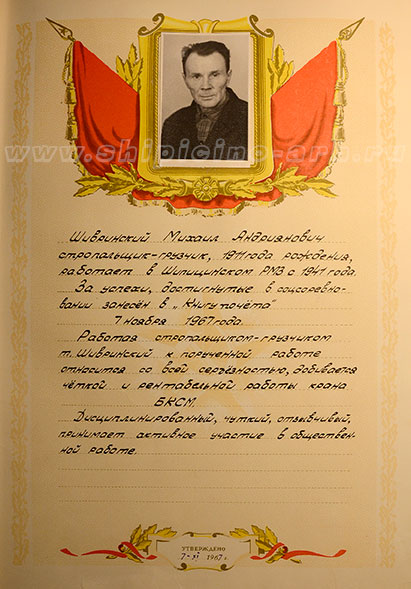 www.shipicino-arp.ru
Шивринский Михаил Андриянович
стропальщик-грузчик, 1911 года рождения,
работает в Шипицинском РМЗ с 1941 года.
За успехи, достигнутые в соцсоревно-
вании занесён в „Книгу почёта"
7 ноября 1967 года.
Работая стропальщиком-грузчиком
т. Шивринский к порученной работе
относится со всей серьёзностью, добивается
чёткой и рентабельной работы крана
БКСМ.
Дисциплинированный, чуткий, отзывчивый,
принимает активное участие в обществен-
ной работе.
УТВЕРЖДЕНО
7-XI 1967 г.